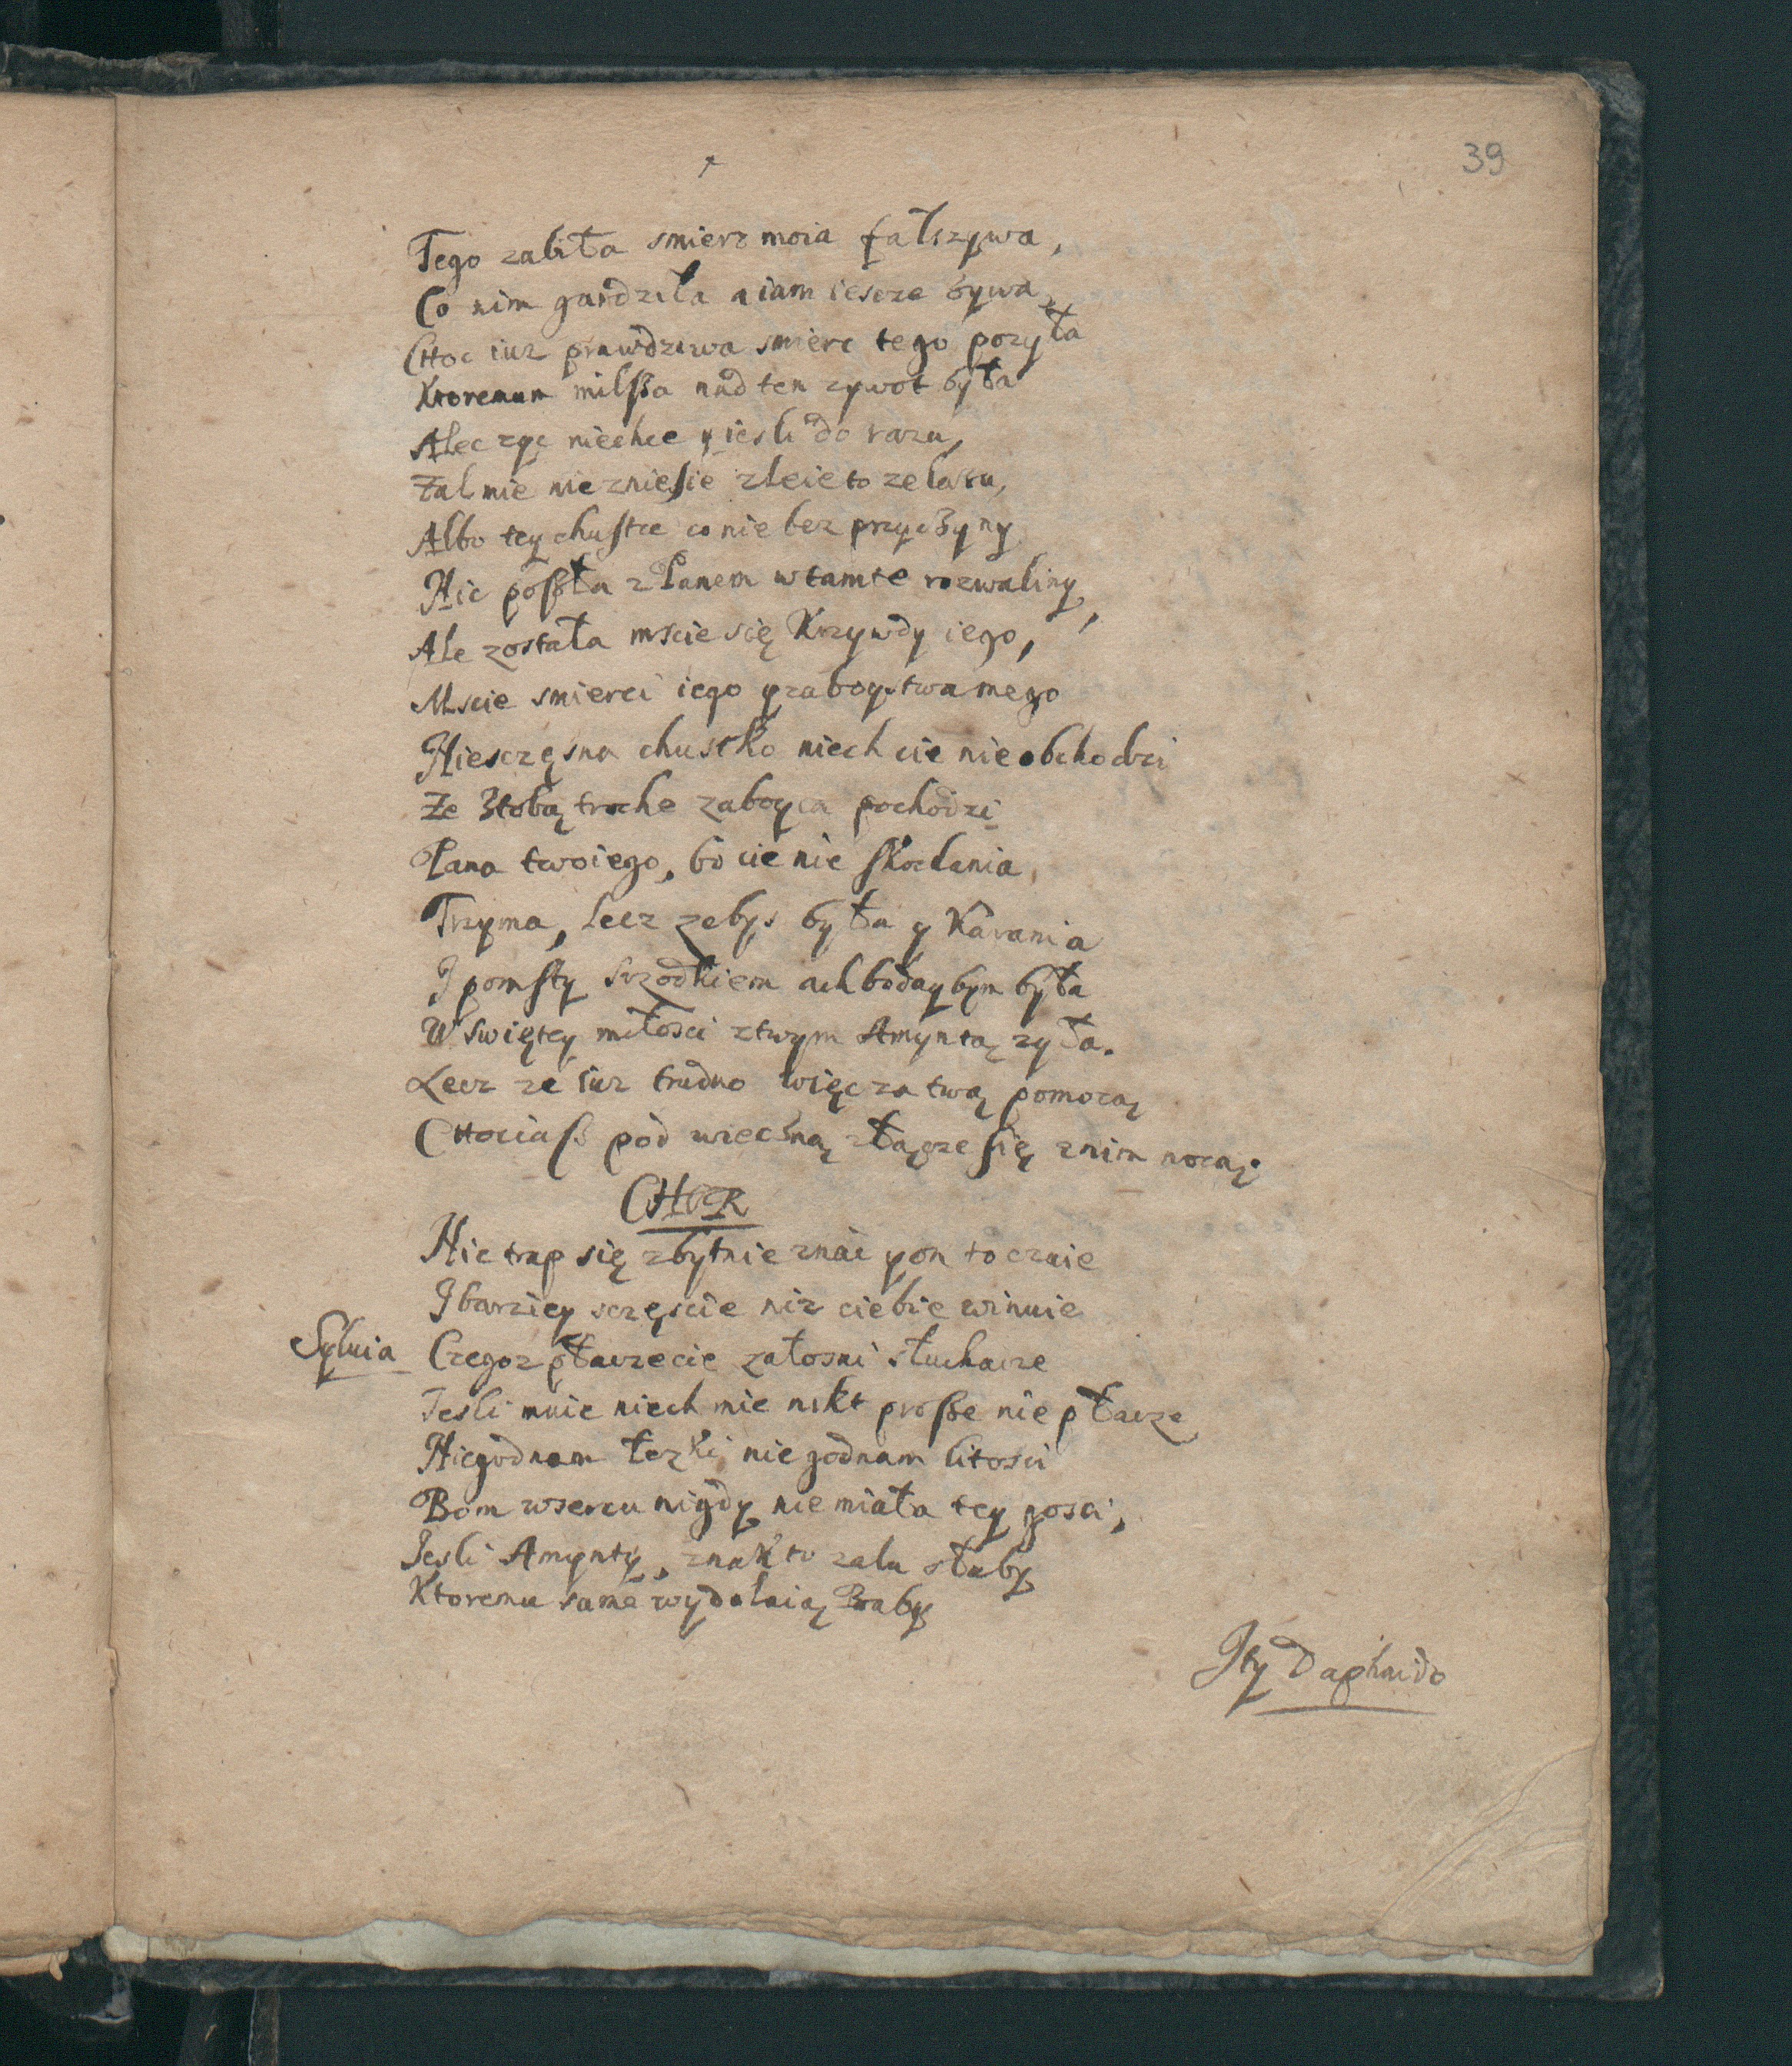 39
Tego zabiła smierc moia fałszywa,
Co nim gardziła a iam iescze zywa,
CHoc iuz prawdziwa smierc tego pozyła
Ktoremum milßa nad ten zywot była
Alec zyc niechce y iesli do razu,
Zal mie nie zniesie zleie to zelazu,
Albo tey chustce co nie bez przyczyny
Nie poßła z Panem w tamte rozwaliny,
Ale została mscie się Krzywdy iego,
Mscie smierci iego y zaboystwa mego
Niesczęsna chustko niech cie nie obchodzi
Ze Ztobą troche zaboyca pochodzi
Pana twoiego, bo cie nie skochania
Trzyma, lecz zebys była y Karania
I pomsty srzodkiem ach bodaybym była
W swiętey miłosci ztwym Amyntą zyła.
Lecz ze iuz trudno więc za twą pomocą
CHociaß pod wiecźną złącze się znim nocą.
CHOR
Nie trap się zbytnie znac y on to czuie
I barziey sczęscie niz ciebie winuie
Sylvia Czegoz płaczecie załosni słuchacze
Iesli mnie niech mie nikt proße nie płacze
Niegodnam łezki niegodnam litosci
Bom wsercu nigdy nie miała tey gosci,
Iesli Amynty, znak to zalu słaby
Ktoremu same wydołaią Baby
I ty Daphnido